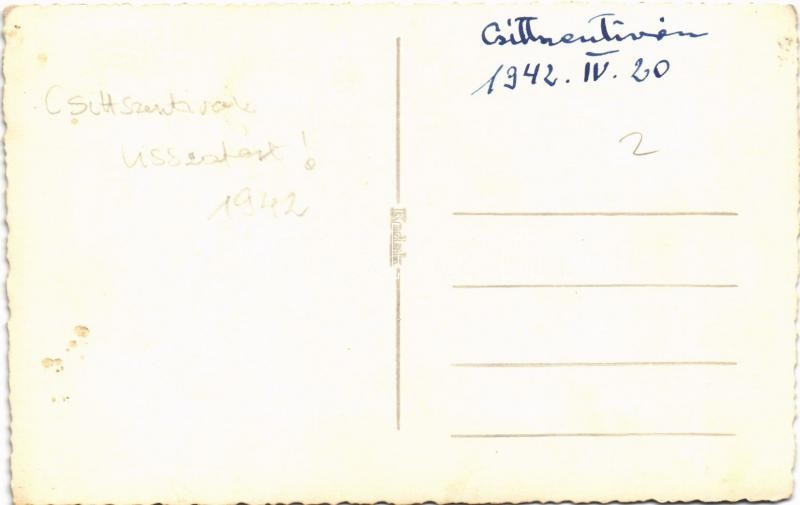 Csittszentiván
1942. IV. 20
Csittszentiván
visszatért!
1942
2